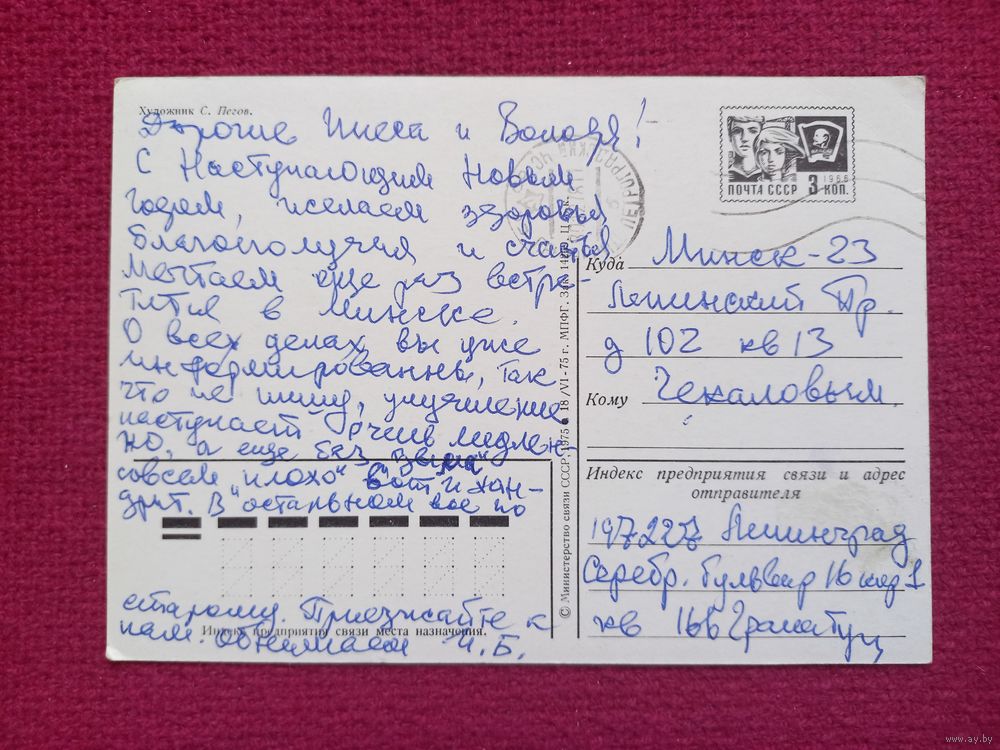 Художник С. Пегов.
Дорогие Инеса и Володя!
С Наступающим Новым
годом, желаем здоровья
благополучия и счастья
мечтаем еще раз встре-
тится в Минске.
О всех делах вы уже
информированны, так
что не пишу, улучшение
наступает очень медлен-
но, а еще без
совсем "плохо" вот и хан-
дрит. В остальном все по
старому. Приезжайте к
нам обнимаем И.Б.
Индекс предприятия связи места назначения.
© Министерство связи СССР. 1975 18/VI-75 г. МПФГ. Зак.
ПОЧТА СССР 3 КОП.
1966
Куда Минск-23
Ленинский Пр.
д 102 кв 13
Кому Чекаловым
Индекс предприятия связи и адрес
отправителя
197227 Ленинград
Серебр. бульвар 16 кор 1
кв 166
www.ay.by